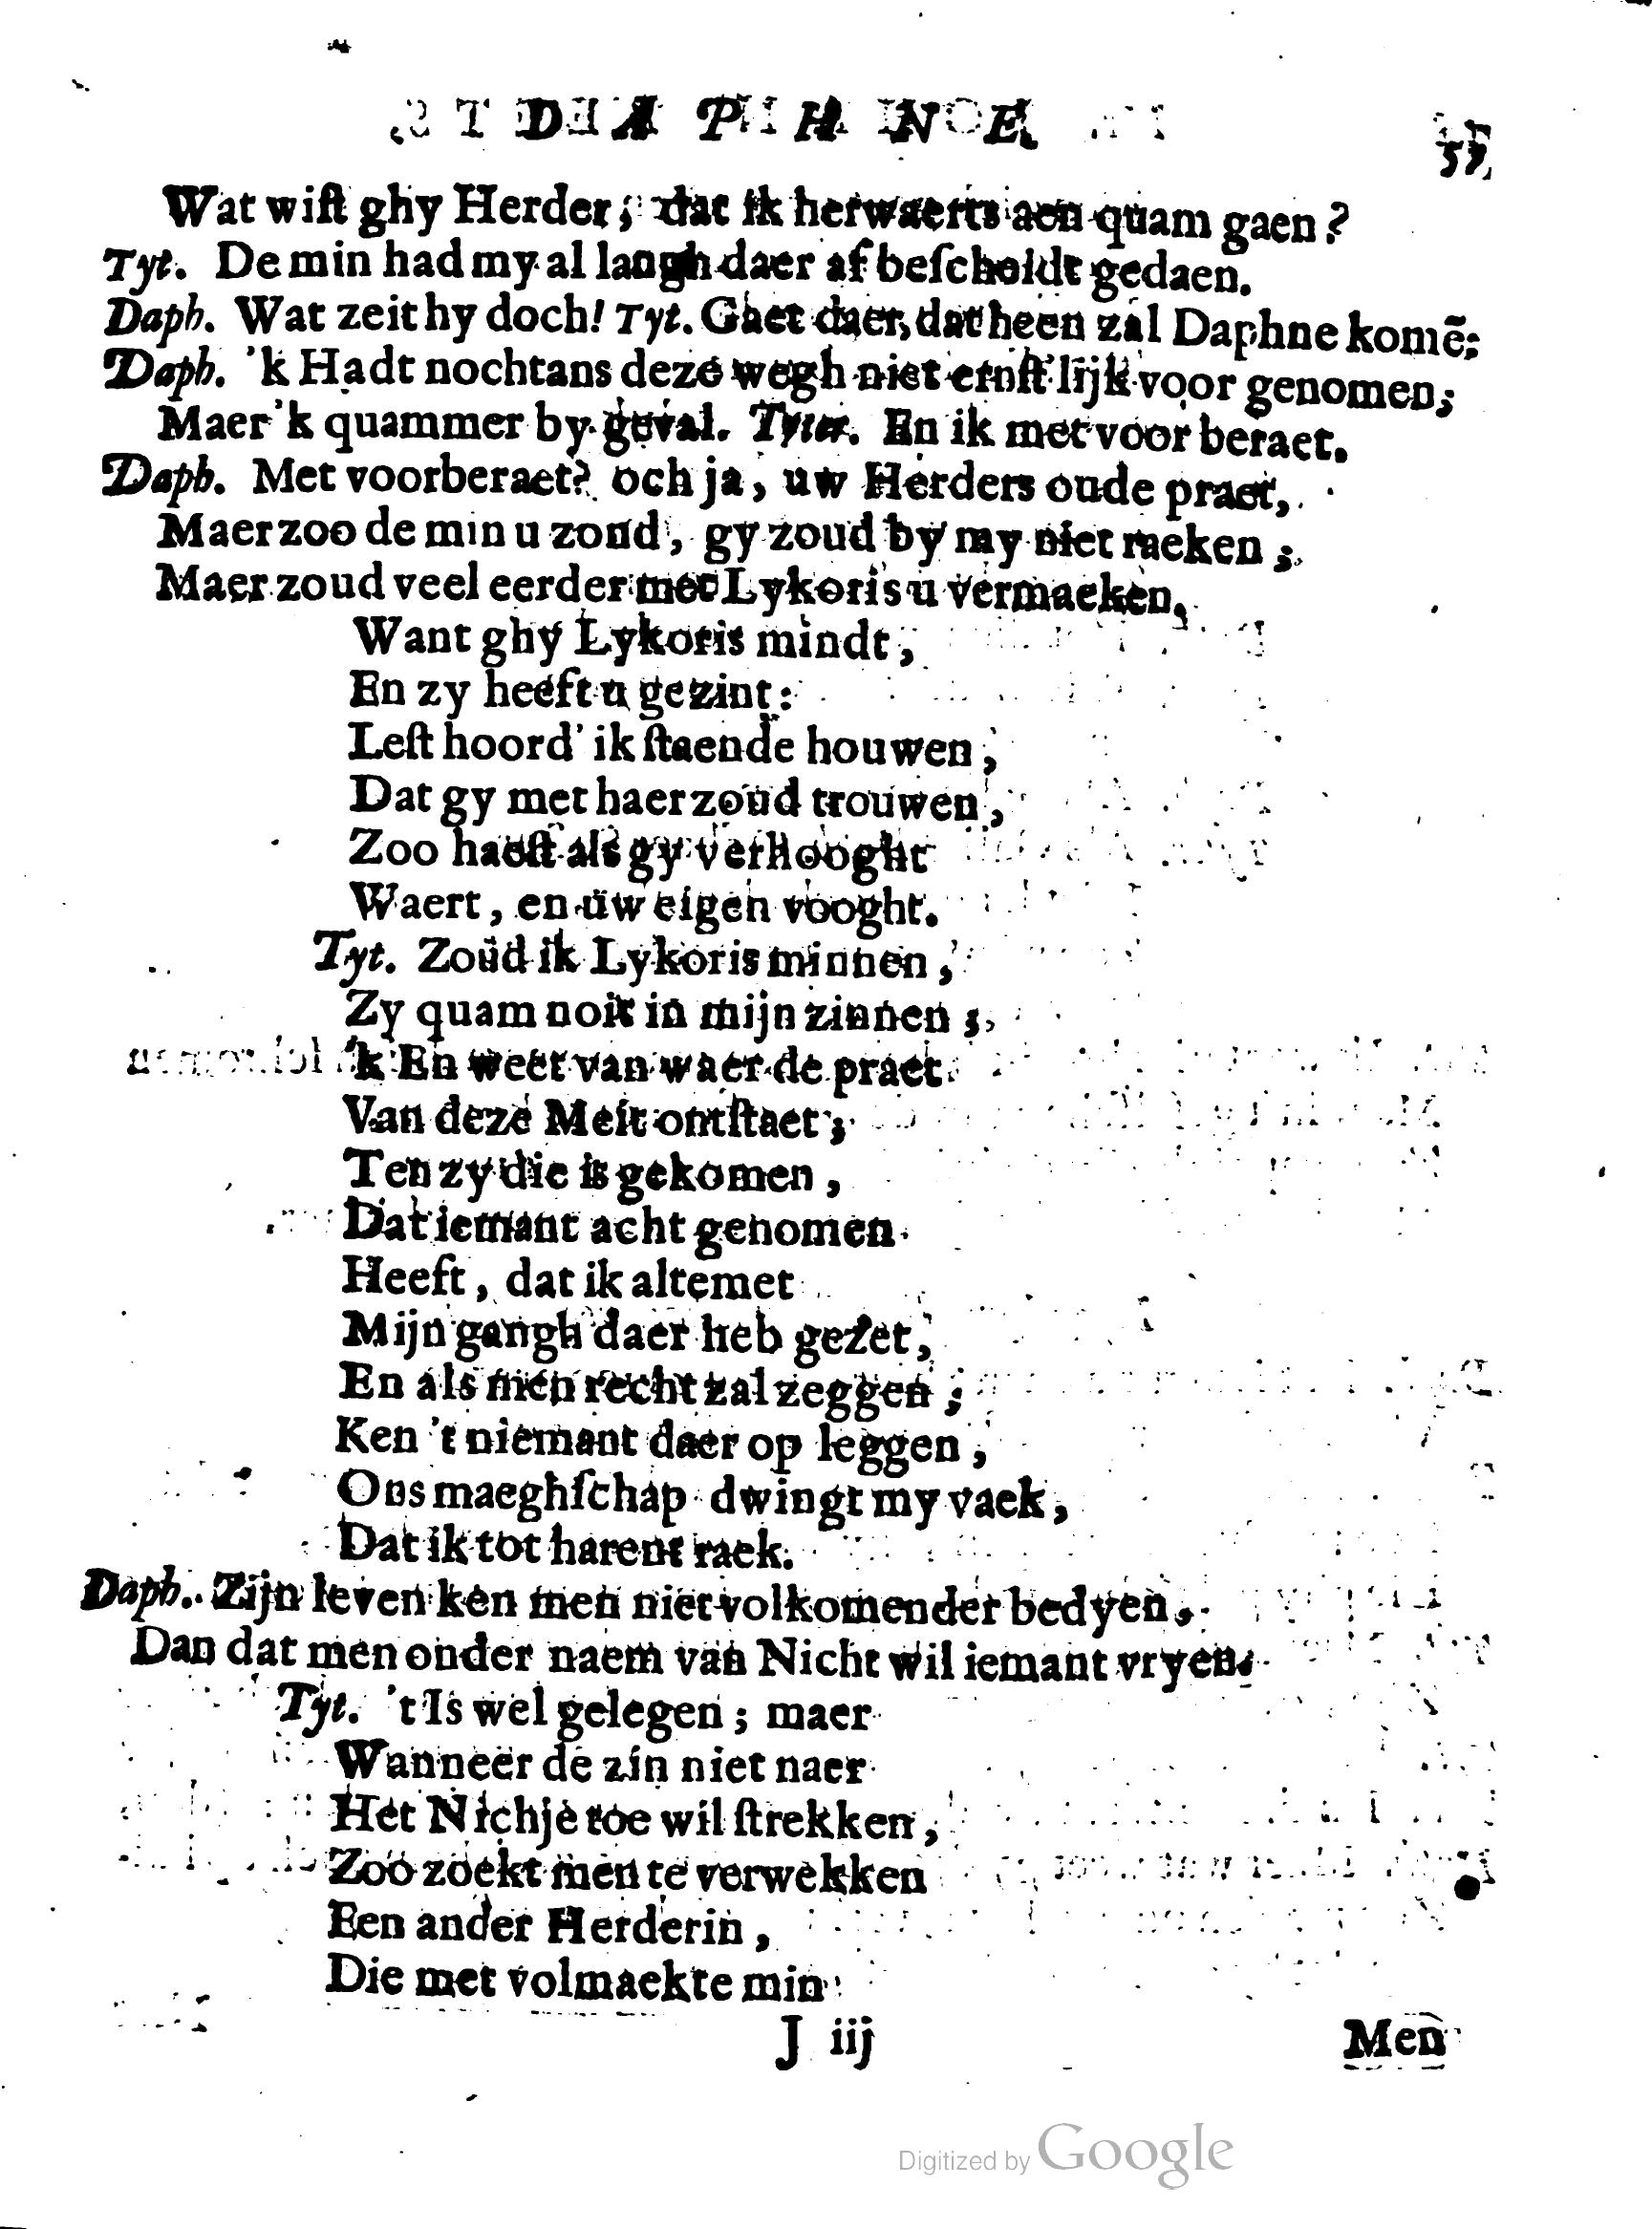 DAPHNE.
57.
Wat wiſt ghy Herder, dat ik herwaerts aen quam gaen?
Tyt. De min had my al langh daer af beſcheidt gedaen.
Daph. Wat zeit hy doch! Tyt. Gaet daer, dat heen zal Daphne komẽ;
Daph. 'k Hadt nochtans deze wegh niet ernſt'lijk voor genomen;
Maer 'k quammer by geval. Tyter. En ik met voor beraet.
Daph. Met voorberaet? och ja, uw Herders oude praet,
Maer zoo de min u zond, gy zoud by my niet raeken;
Maer zoud veel eerder met Lykoris u vermaeken,
Want ghy Lykoris mindt,
En zy heeft u gezint:
Leſt hoord' ik ſtaende houwen,
Dat gy met haer zoud trouwen,
Zoo haeſt als gy verhooght
Waert, en uw eigen vooght.
Tyt. Zoud ik Lykoris minnen,
Zy quam noit in mijn zinnen;
'k En weet van waer de praet
Van deze Meit ontſtaet;
Ten zy die is gekomen,
Dat iemant acht genomen
Heeft, dat ik altemet
Mijn gangh daer heb gezet,
En als men recht zal zeggen;
Ken 't niemant daer op leggen,
Ons maeghſchap dwingt my vaek,
Dat ik tot harent raek.
Daph. Zijn leven ken men niet volkomender bedyen,
Dan dat men onder naem van Nicht wil iemant vryen.
Tyt. 't Is wel gelegen; maer
Wanneer de zin niet naer
Het Nichje toe wil ſtrekken,
Zoo zoekt men te verwekken
Een ander Herderin,
Die met volmaekte min
J iij
Men
Digitized by Google